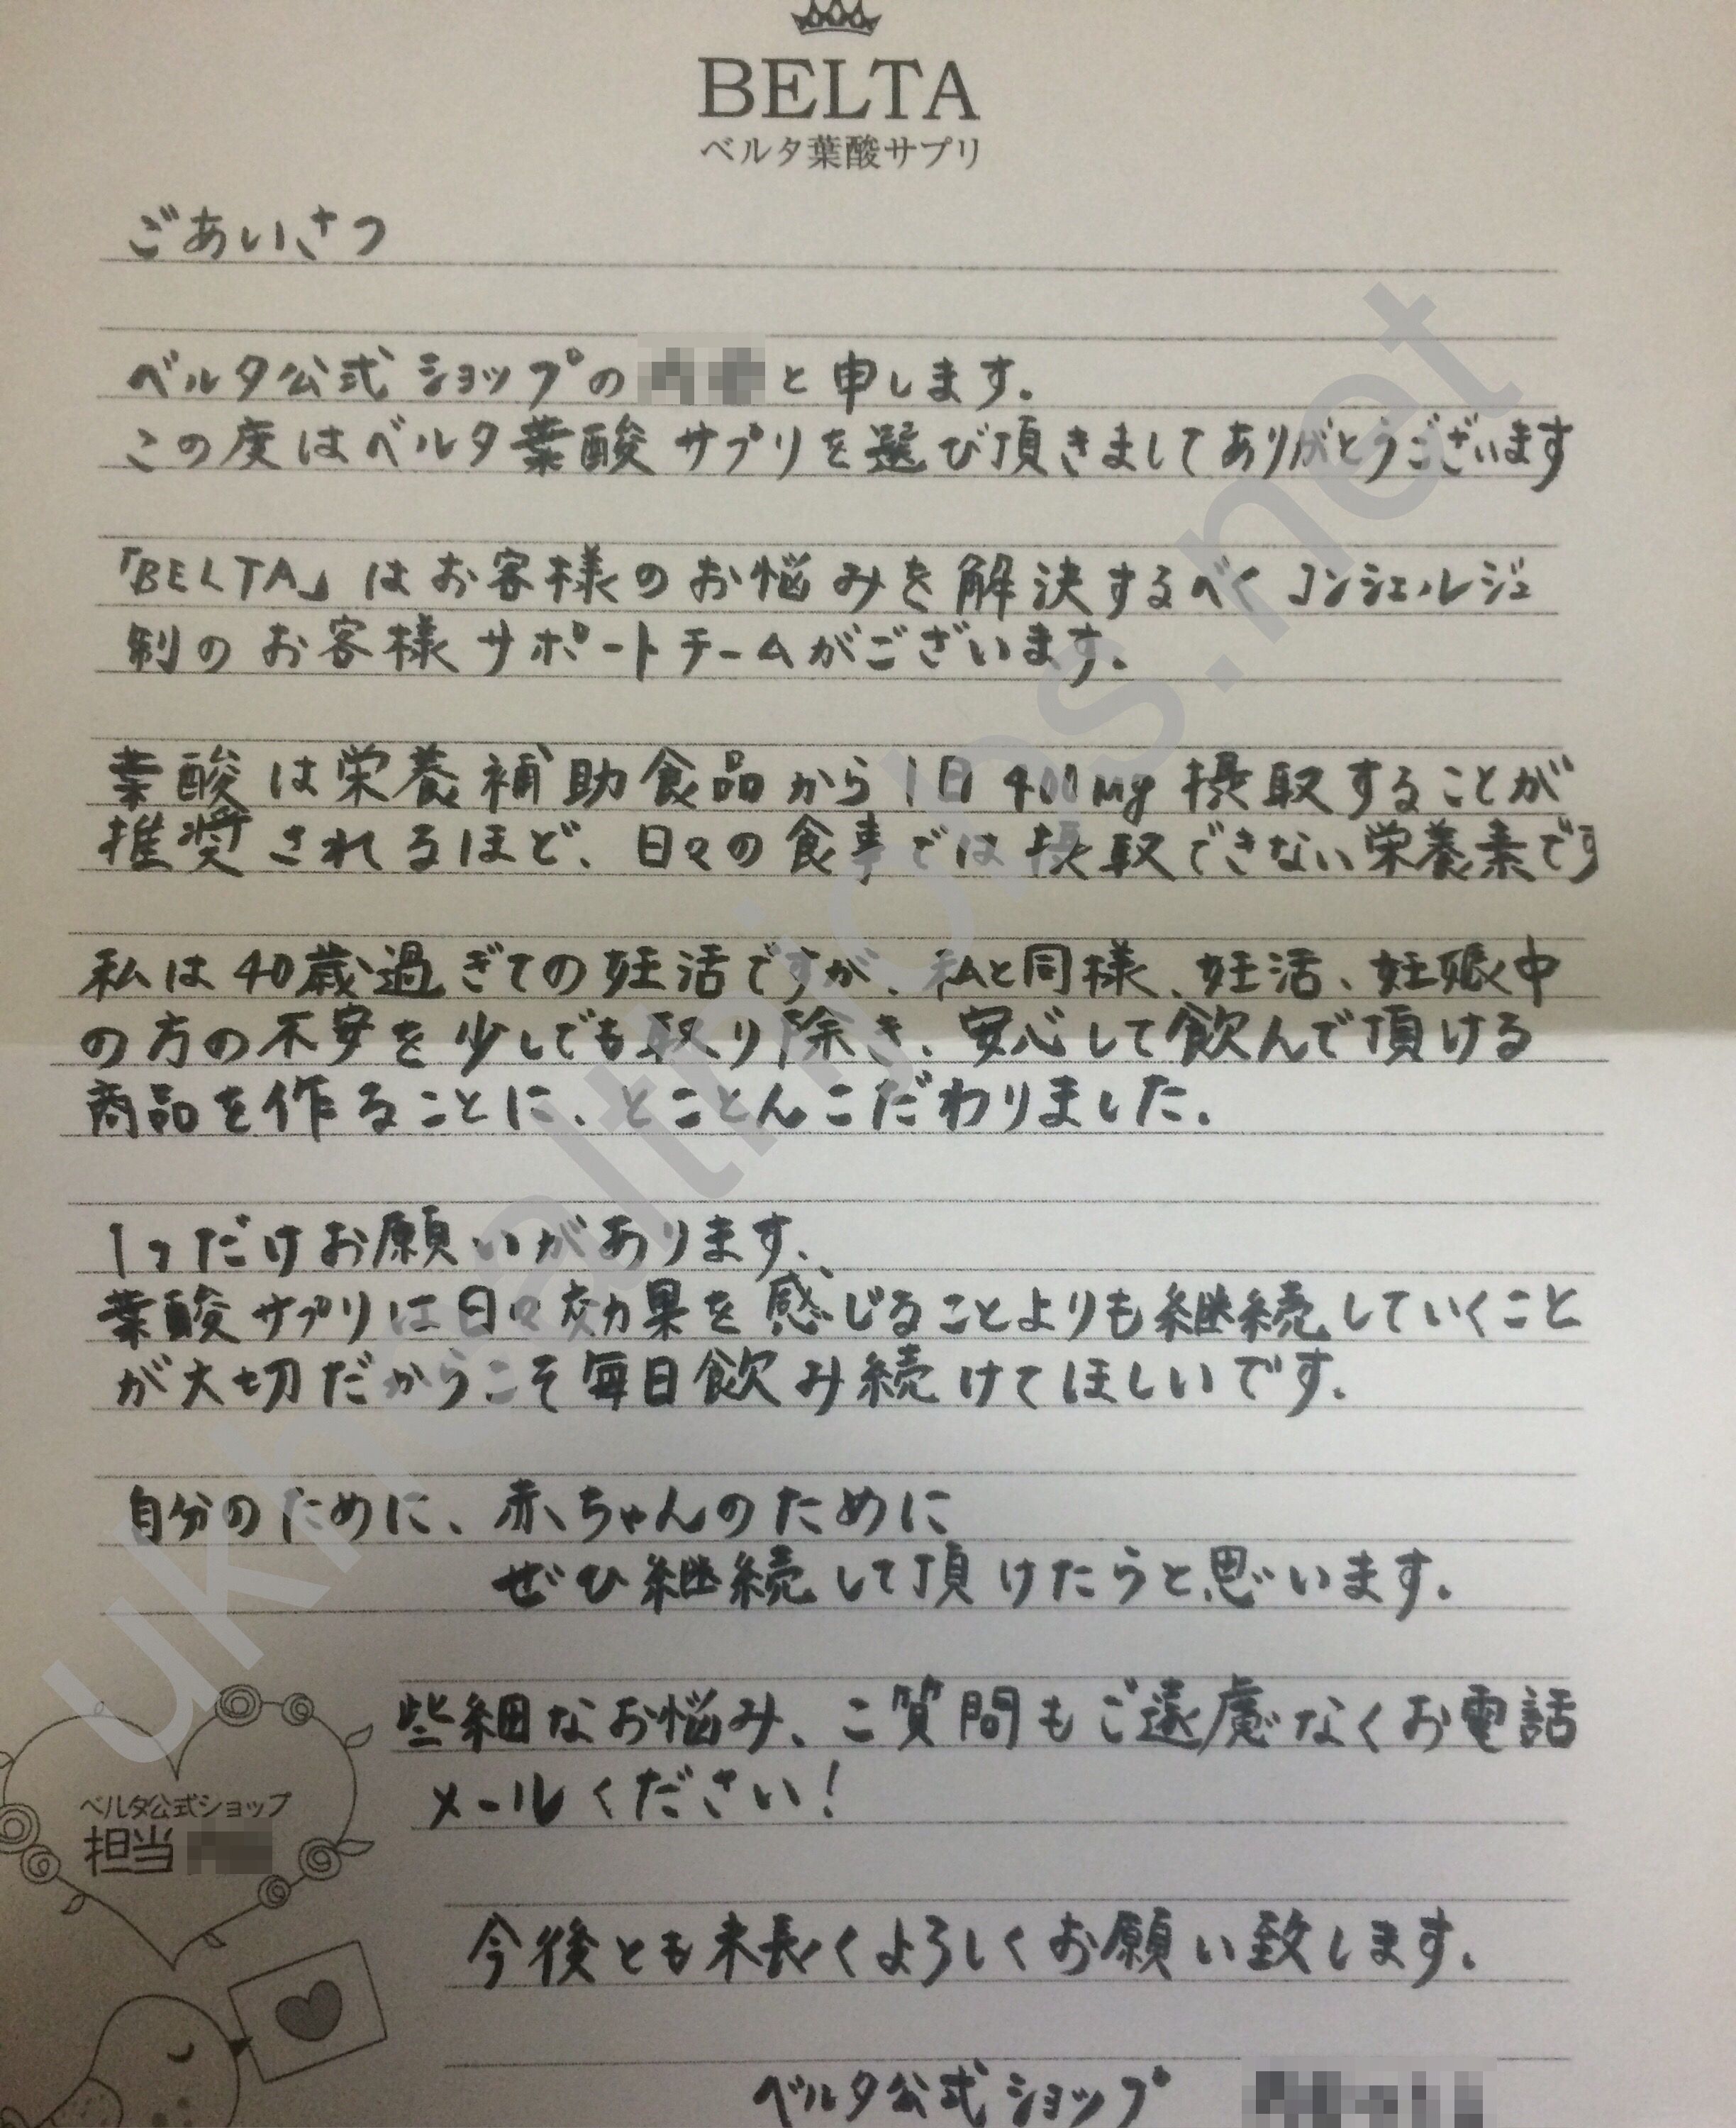 BELTA
ベルタ葉酸サプリ
ごあいさつ
ベルタ公式ショップの と申します。
この度はベルタ葉酸サプリを選び頂きましてありがとうございます
「BELTA」はお客様のお悩みを解決するべくコンシェルジュ
制のお客様サポートチームがございます。
葉酸は栄養補助食品から1日400mg摂取することが
推奨されるほど、日々の食事では摂取できない栄養素です
私は40歳過ぎての妊活ですが、私と同様、妊活、妊娠中
の方の不安を少しでも取り除き、安心して飲んで頂ける
商品を作ることに、とことんこだわりました。
1つだけお願いがあります、
葉酸サプリは日々効果を感じることよりも継続していくこと
が大切だからこそ毎日飲み続けてほしいです。
自分のために、赤ちゃんのために
ぜひ継続して頂けたらと思います。
些細なお悩み、ご質問もご遠慮なくお電話
メールください！
ベルタ公式ショップ
担当
今後とも末長くよろしくお願い致します。
ベルタ公式ショップ
ukhealthjobs.net